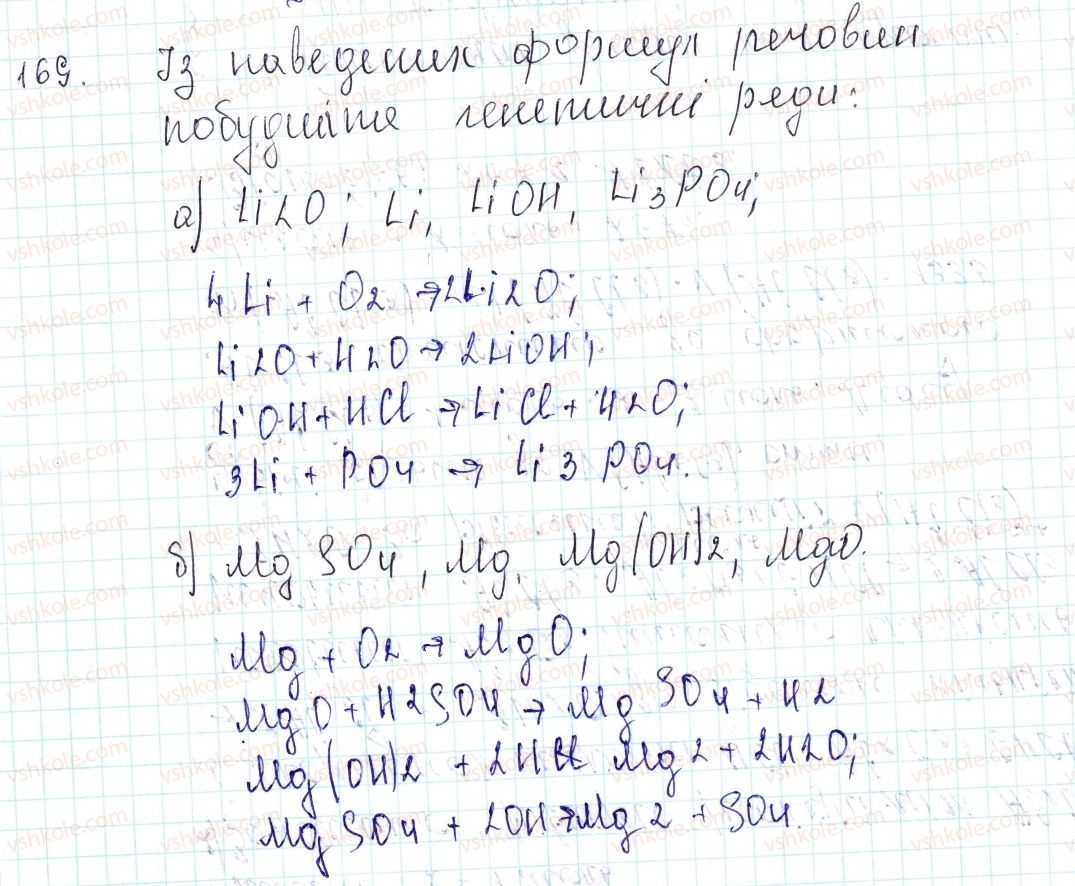 169. Із наведених формул речовин
побудуйте генетичні ряди:
а) Li2O; Li, LiOH, Li3PO4;
4Li + O2 → 2Li2O;
Li2O + H2O → 2LiOH;
LiOH + HCl → LiCl + H2O;
3Li + PO4 → Li3PO4.
б) MgSO4, Mg, Mg(OH)2, MgO.
Mg + O2 → MgO;
MgO + H2SO4 → MgSO4 + H2
Mg(OH)2 + 2HCl Mg2 + 2H2O;
MgSO4 + 2OH → Mg2 + SO4